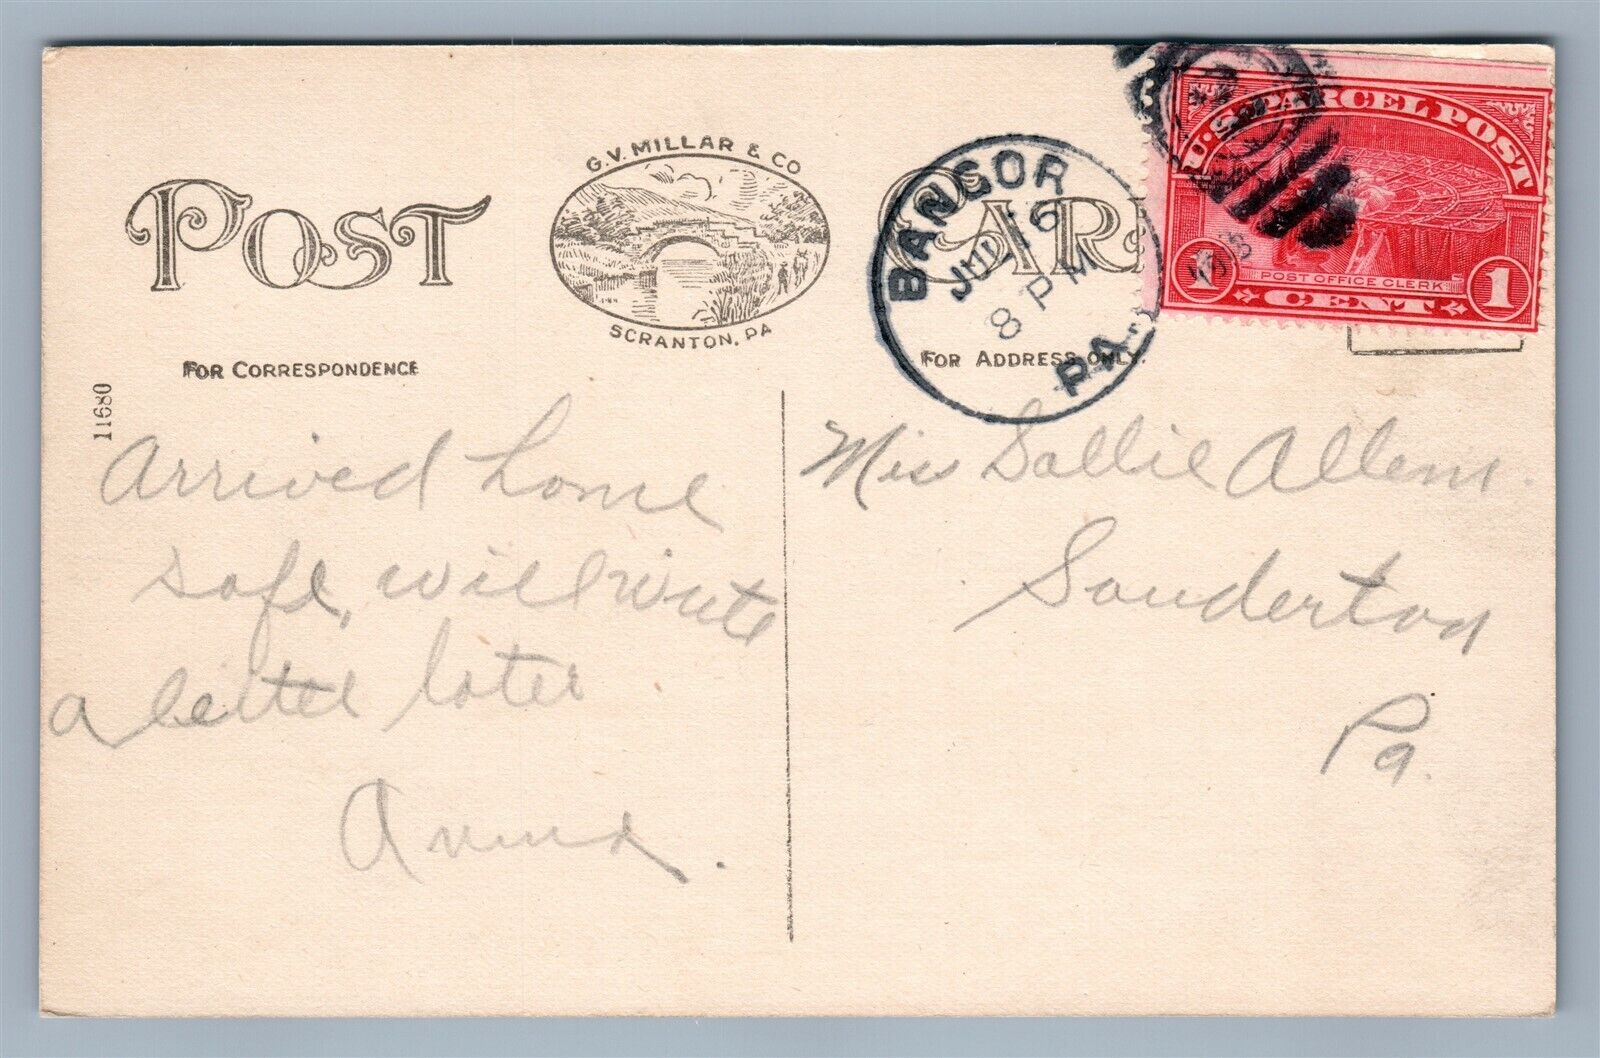 POST CAR
G.V. MILLAR & CO
SCRANTON, PA
FOR CORRESPONDENCE
FOR ADDRESS ONLY.
11680
BANGOR
JUL 16
8 PM
PA.
U.S. PARCEL POST
POST OFFICE CLERK
1 CENT 1
Arrived home
safe, will write
a letter later
Anna.
Miss Sallie Allem.
Souderton
Pa.